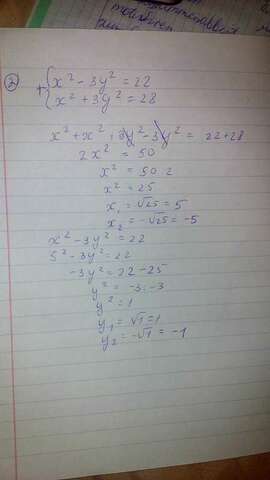 2) + { x² - 3y² = 22
x² + 3y² = 28
x² + x² + 3y² - 3y² = 22 + 28
2x² = 50
x² = 50 : 2
x² = 25
x₁ = √25 = 5
x₂ = -√25 = -5
x² - 3y² = 22
5² - 3y² = 22
-3y² = 22 - 25
y² = -3 : -3
y² = 1
y₁ = √1 = 1
y₂ = -√1 = -1